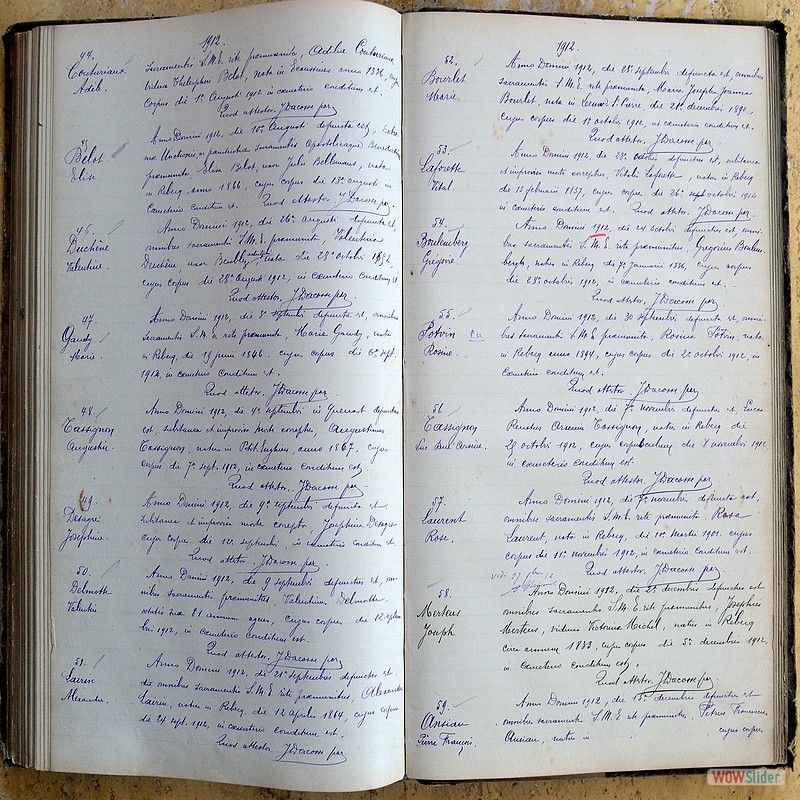 1912.
44.
Couturiaux
Adèl.
sacramentis S.M.E. rite praemunita, Adelia Couturiaux,
vidua Thelesphori Belot, nata in Ecaussines anno 1836, cujus
corpus die 1a Augusti 1912 in coemeterio conditum est.
Quod attestor. J Dacosse par
45
Belot
Elise
Anno Domini 1912, die 10a Augusti defuncta est,
Unctionis, et
praemunita Elisa Belot, uxor Julii Bellemans, nata
in Rebecq anno 1866, cujus corpus die 13a augusti in
coemeterio conditum est. Quod attestor. J Dacosse par.
46.
Duchêne
Valentine.
Anno Domini 1912, die 26a augusti defuncta est,
omnibus sacramentis S.M.E. praemunita, Valentina
Duchêne, uxor nata die 28a octobri
cujus corpus die 28a augusti 1912, in coemeterio conditum est.
Quod attestor. J Dacosse par
47.
Gaudy
Marie.
Anno Domini 1912, die 3a septembri defuncta est, omnibus
sacramentis S.M.E. rite praemunita, Maria Gaudy, nata
in Rebecq, die 15 junii 1846. cujus corpus die 6a sept.
1912, in coemeterio conditum est.
Quod attestor. J Dacosse par.
48.
Cassignon
Augustin.
Anno Domini 1912, die 4a septembri in Quenast defunctus
est, subitanea et improvisa morte correptus, Augustinus
Cassignon, natus in Petit Enghien, anno 1867. cujus
corpus die 7a sept. 1912, in coemeterio conditum est.
Quod attestor. J Dacosse par
49.
Desagre
Josephine.
Anno Domini 1912, die 9a septembri defuncta est
subitanea et improvisa morte correpta, Josephina Desagre
cujus corpus die 12a septembri, in coemeterio conditum est.
Quod attestor. J Dacosse par.
50.
Delmotte
Valentin
Anno Domini 1912, die 9 septembri defunctus est, om-
nibus sacramentis praemunitus, Valentinus Delmotte,
aetatis suae 81 annum agens, cujus corpus die 12 septem-
bri 1912, in coemeterio conditum est.
Quod attestor. J Dacosse par
51.
Lairin
Alexandre.
Anno Domini 1912, die 21a septembri defunctus est,
die omnibus sacramentis S.M.E. rite praemunitus, Alexander
Lairin, natus in Rebecq, die 12 aprilis 1864, cujus corpus
die 24 sept. 1912, in coemeterio conditum est.
Quod attestor. J Dacosse par
1912.
52.
Bourlet
Marie.
Anno Domini 1912, die 28a septembri defuncta est, omnibus
sacramentis S.M.E. rite praemunita, Maria Joseph Joanna
Bourlet, nata in Leeuw St Pierre die 21a decembri 1890,
cujus corpus die 1a octobri 1912, in coemeterio conditum est.
Quod attestor. J Dacosse par
53.
Lafosette
Vital.
Anno Domini 1912, die 22a octobri defunctus est, subitanea
et improvisa morte correptus, Vitalis Lafosette, natus in Rebecq
die 13 februarii 1837, cujus corpus die 26a octobri 1912
in coemeterio conditum est. Quod attestor. J Dacosse par.
54.
Boulenberg
Grégoire.
Anno Domini 1912, die 24 octobri defunctus est, omni-
bus sacramentis S.M.E. rite praemunitus, Gregorius Boulen-
bergh, natus in Rebecq die 7a januarii 1836, cujus corpus
die 28a octobri 1912, in coemeterio conditum est.
Quod attestor. J Dacosse par.
55.
Potvin
Rosine.
Anno Domini 1912, die 30 septembri defuncta est, omni-
bus sacramentis S.M.E. praemunita, Rosina Potvin, nata
in Rebecq anno 1894, cujus corpus die 2a octobri 1912, in
coemeterio conditum est.
Quod attestor. J Dacosse par.
56
Cassignon
Luc René Arsène.
Anno Domini 1912, die 7a novembri defunctus est, Lucas
Renatus Arsenius Cassignon, natus in Rebecq die
octobri 1912, cujus corpusculum die 8 novembri 1912,
in coemeterio conditum est.
Quod attestor. J Dacosse par
57.
Laurent
Rose.
Anno Domini 1912, die 9a novembri defuncta est,
omnibus sacramentis S.M.E. rite praemunita. Rosa
Laurent, nata in Rebecq, die 10a Martii 1901, cujus
corpus die 11a novembri 1912, in coemeterio conditum est.
Quod attestor. J Dacosse par
58.
Mertens
Joseph
Anno Domini 1912, die 2a decembri defunctus est
omnibus sacramentis S.M.E. rite praemunitus, Josephus
Mertens, viduus Victoriae Michel, natus in Rebecq
circa annum 1833, cujus corpus die 5a decembri 1912,
in coemeterio conditum est.
Quod attestor. J Dacosse par.
59.
Ansiau
Pierre François.
Anno Domini 1912, die 15a decembri defunctus est
omnibus sacramentis S.M.E. rite praemunitus, Petrus Franciscus
Ansiau, natus in cujus corpus
WOWSlider.com